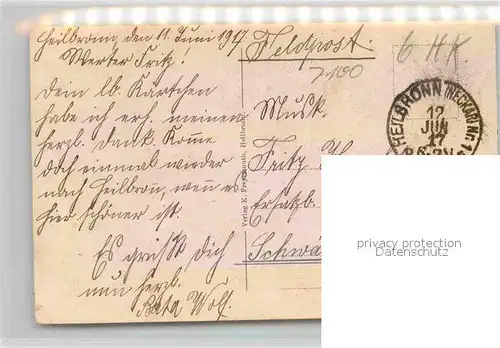 Heilbronn, den 11. Juni 1917
Werter Fritz!
Dein lb. Kärtchen
habe ich erh. meinen
herzl. Dank. Komme
doch einmal wieder
nach Heilbron, wen es
hier schöner ist.
Es grüßt Dich
nun herzl.
Wolf.
Feldpost.
6 HK.
7100
HEILBRONN (NECKAR) Nr 1
12
JUN
17
Musk.
Fritz
Ersatzb.
Schwä
Verlag K. Heilbronn
privacy protection
Datenschutz